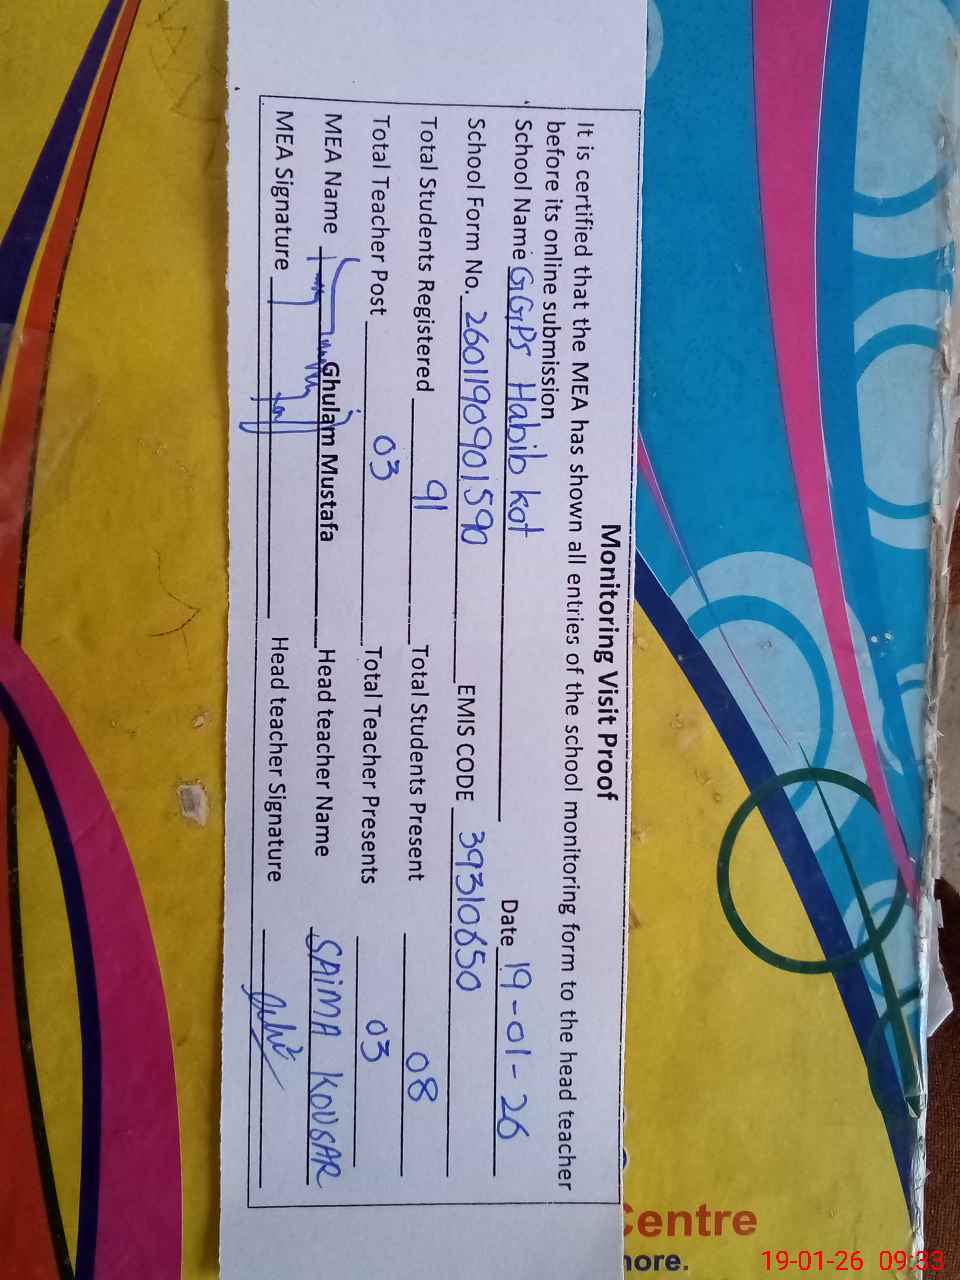 Monitoring Visit Proof
It is certified that the MEA has shown all entries of the school monitoring form to the head teacher
before its online submission
School Name GGPS Habib kot Date 19-01-26
School Form No. 2601190901590 EMIS CODE 39310650
Total Students Registered 91 Total Students Present 08
Total Teacher Post 03 Total Teacher Presents 03
MEA Name Ghulam Mustafa Head teacher Name SAIMA KOUSAR
MEA Signature Head teacher Signature
Centre
nore.
19-01-26 09:33